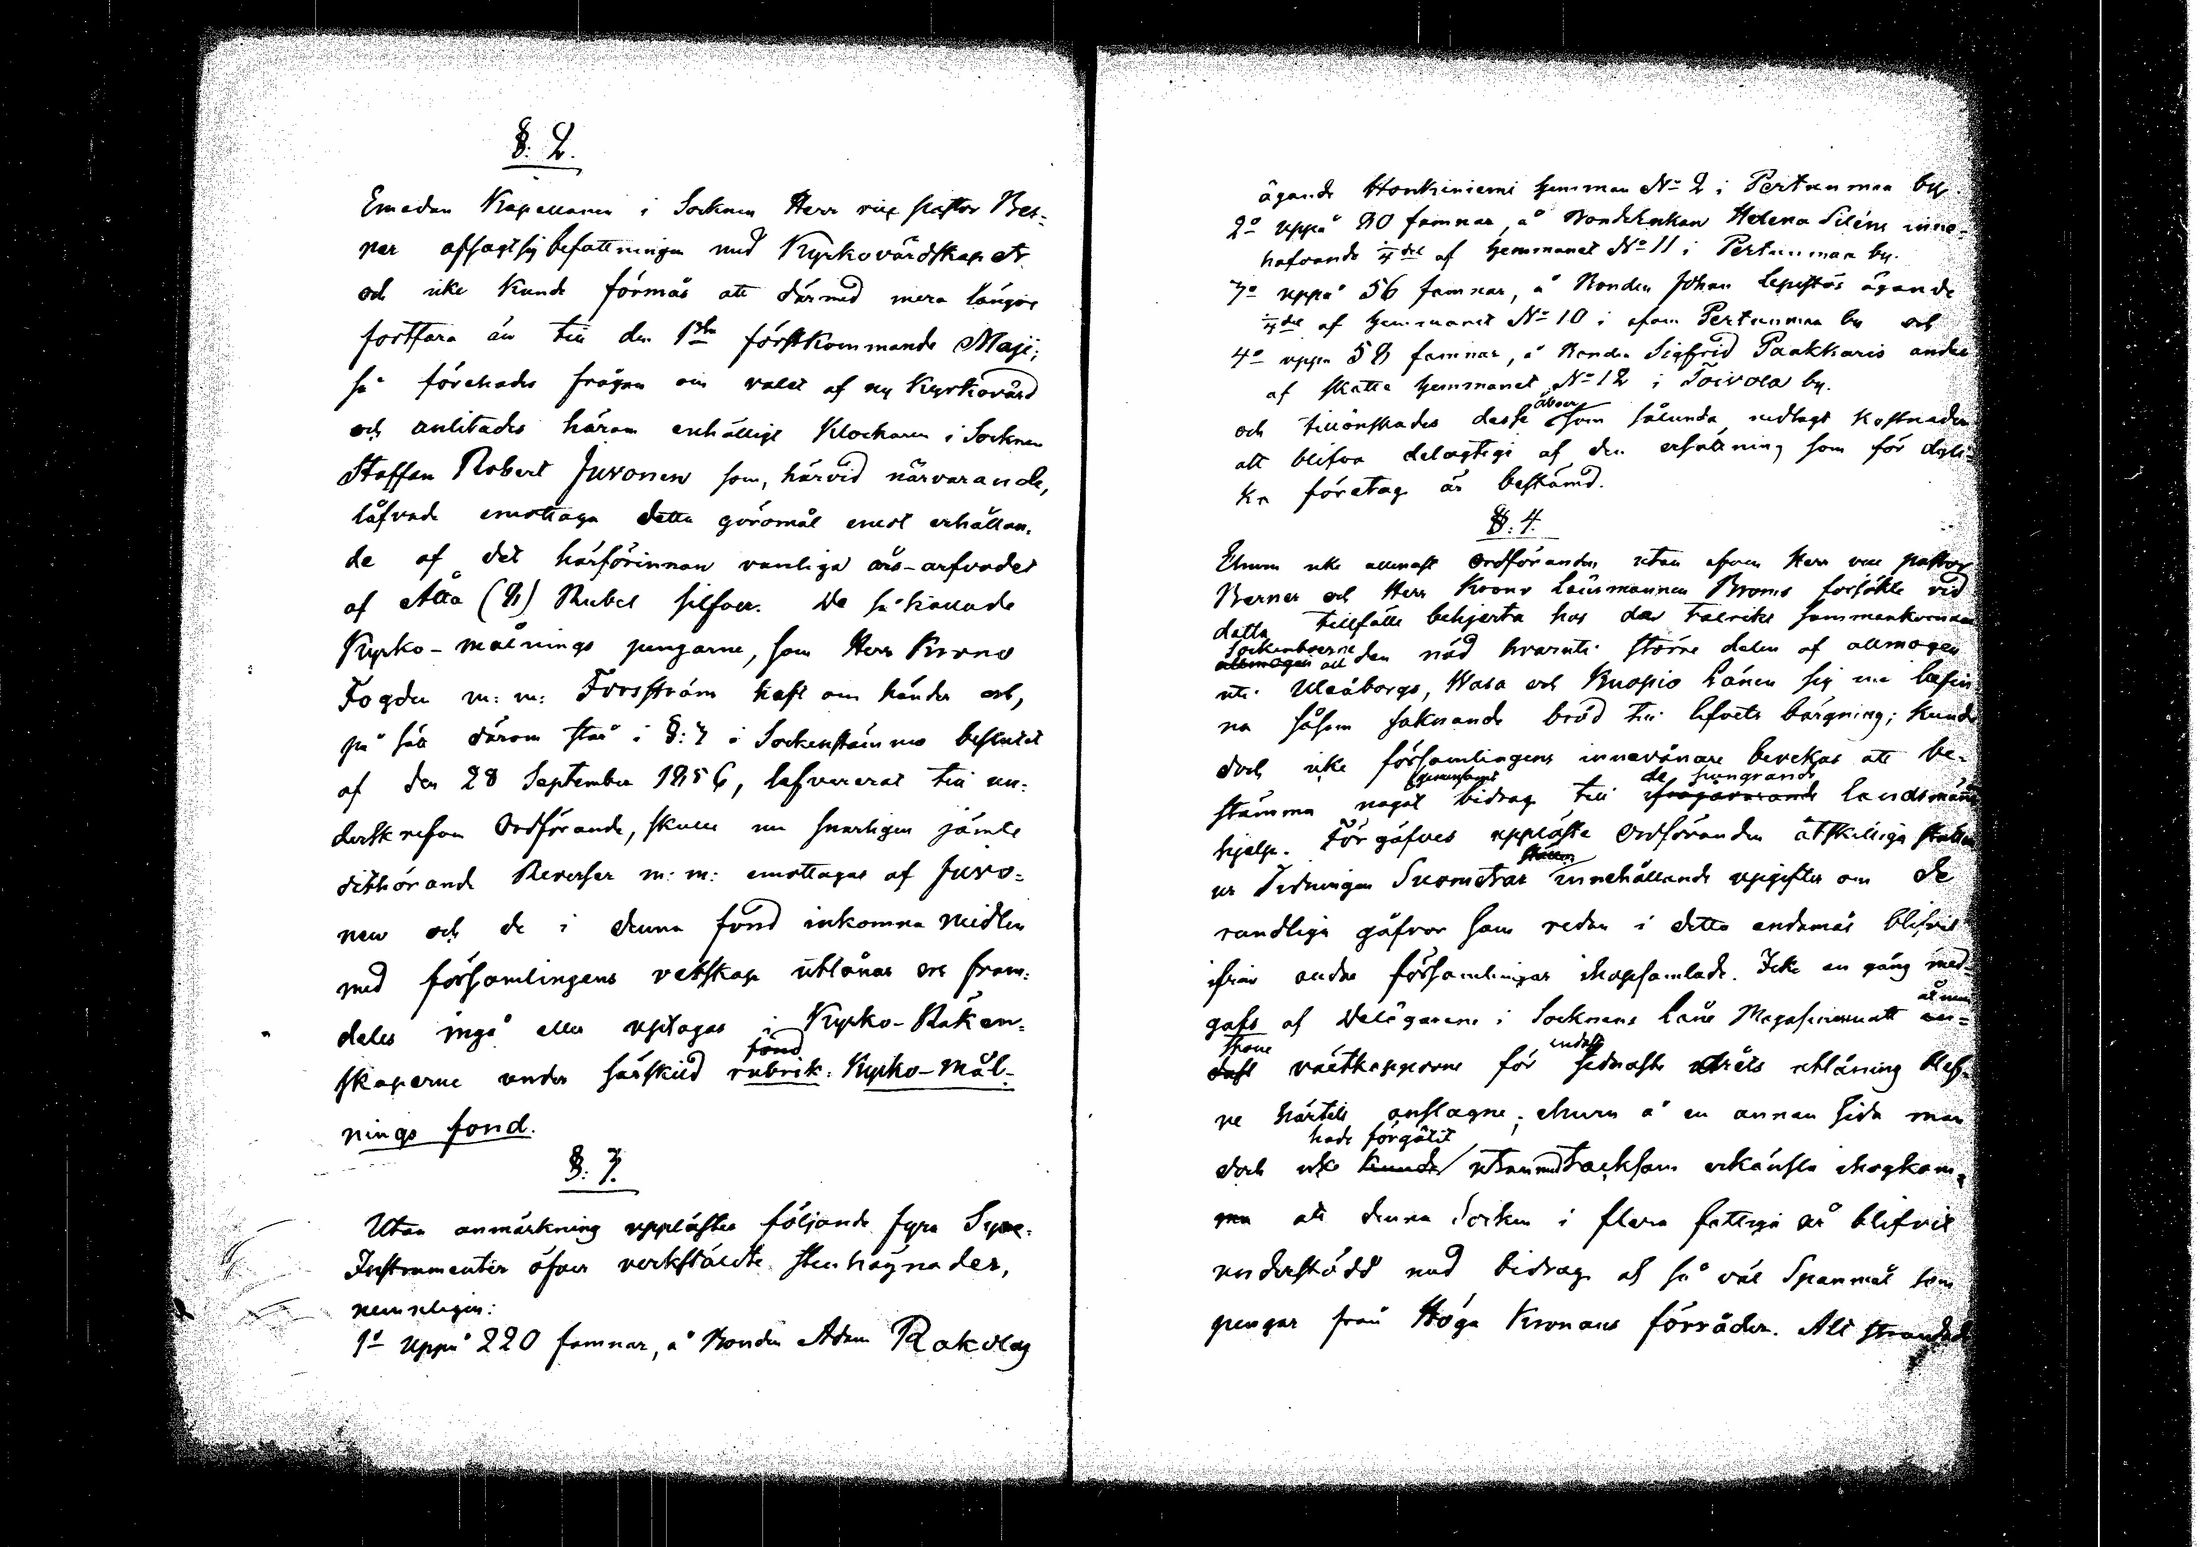 §. 2.
Emedan Kapellanen i Socknen Herr vice pastor Ber-
ner afsagt sig befattningen med Kyrkovärdskapet
och icke kunde förmås att därmed mera längre
fortfara än till den 1sta förstkommande Maji;
så förehades frågan om valet af ny Kyrkovärd
och anlitades härom enhälligt Klockaren i Socknen
Staffan Robert Juvonen som, härvid närvarande,
låfvade emottaga detta göromål emot erhållan-
de af det härförinnan vanliga års-arfvodet
af Åtta (8) Rubel silfver. De så kallade
Kyrko-målnings pengarne, som Herr Krono
Fogden m: m: Forsström haft om händer och,
på sätt därom står i §: 7 i Sockenstämmo beslutet
af den 28 September 1856, lefvererat till un-
derskrefven Ordförande, skulle nu snarligen jämte
dithörande Reverser m: m: emottagas af Juvo-
nen och de i denna fond inkomna medlen
med församlingens vetskap utlånas och fram-
deles ingå eller upptagas i Kyrko-Räken-
skaperne under särskild rubrik: Kyrko-Mål-
fond
nings fond.
§. 3.
Utan anmärkning upplästes följande fyra Syne-
Instrumenter öfver verkstälde stenhägnader,
nemneligen:
1o Uppå 220 famnar, å Bonden Adam Rakolas
ägande Honkiniemi hemman No 2 i Pertunmaa by.
2o uppå 80 famnar, å BondeEnkan Helena Siléns inne-
hafvande 1/4 del af hemmanet No 11 i Pertunmaa by.
3o uppå 56 famnar, å Bonden Johan Lepistös ägande
1/4 del af hemmanet No 10 i Pertunmaa by och
4o uppå 58 famnar, å Bonden Sigfrid Paakkaris andel
af skatte hemmanet No 12 i Toivola by.
och tillönskades desse åboer som sålunda nedlagt kostnader
att blifva delagtige af den ersättning som för dyli-
ka företag är bestämd.
§. 4.
Ehuru icke allenast Ordföranden utan äfven Herr vice pastor
Berner och Herr Krono Länsmannen Broms försökte vid
detta tillfälle behjerta hos de talrikt sammankomna
Sockenboerne
allmogen all den nöd hvaruti större delen af allmogen
uti Uleåborgs, Wasa och Kuopio Länen sig nu befin-
na såsom saknande bröd till lifvets bärgning; kunde
dock icke församlingens innevånare bevekas att be-
gemensamt de hungrande
stämma något bidrag till landsmäns
hjelp. Förgäfves uppläste Ordföranden åtskilliga ställen
ur Tidningen Suometar innehållande upgifter om de
randliga gåfvor som redan i detta endamål blifvit
ifrån andra församlingar ihopsamlade. Icke en gång med-
gafs af Delägarene i Socknens Låne Magasinerna att
endast
råutkapporne för sednaste årets utlåning blef-
ve härtill anslagne; ehuru å en annan sida man
hade förgätit
dock icke kunde utan med tacksam erkänsla ihogkom-
ma att denna Socken i flera fattiga år blifvit
understödd med bidrag af så väl Spanmål som
pengar från Höga Kronans förråder. Allt strandade